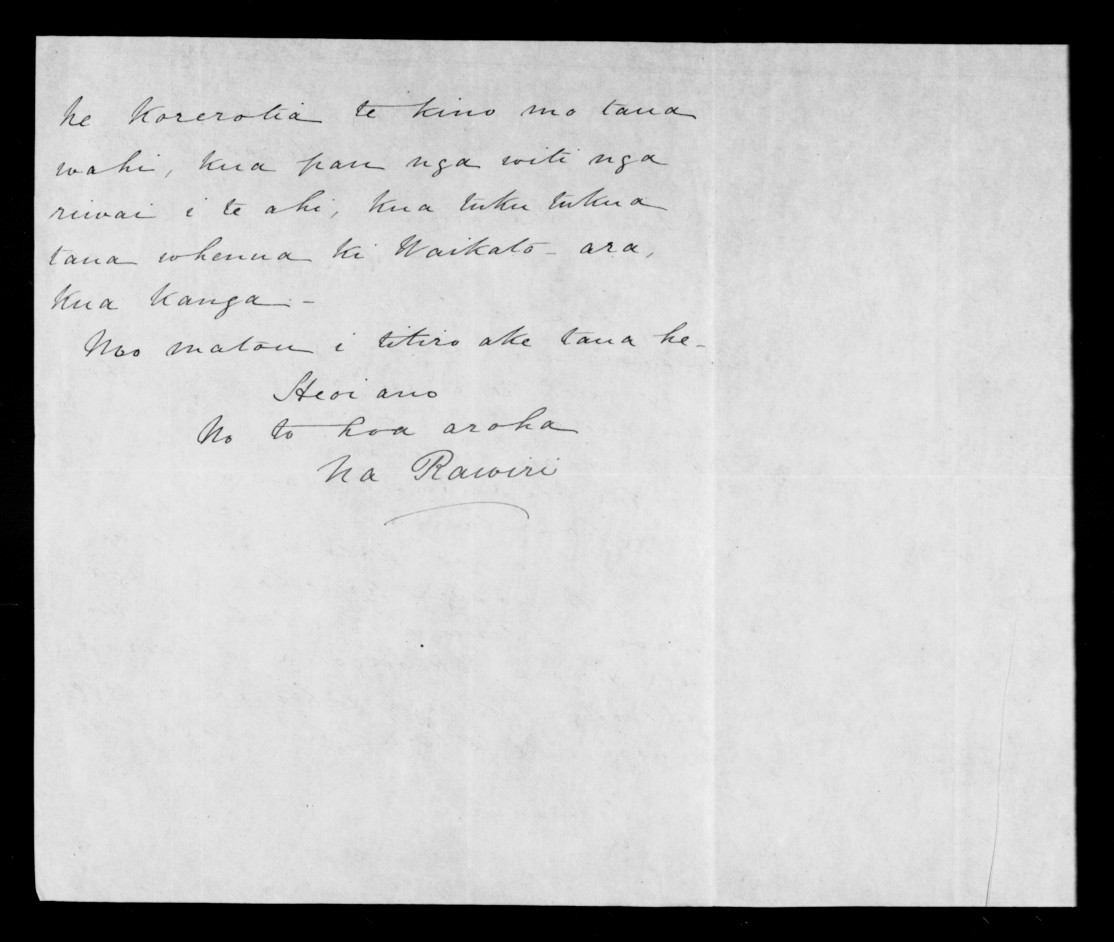 he korerotia te kino mo tana
wahi, kua pau nga witi nga
riwai i te ahi, kua tuku tukua
tana whenua ki Waikato - ara,
kua kanga. -
Mo matou i titiro ake tana he -
Heoi ano
No to hoa aroha
Na Rawiri